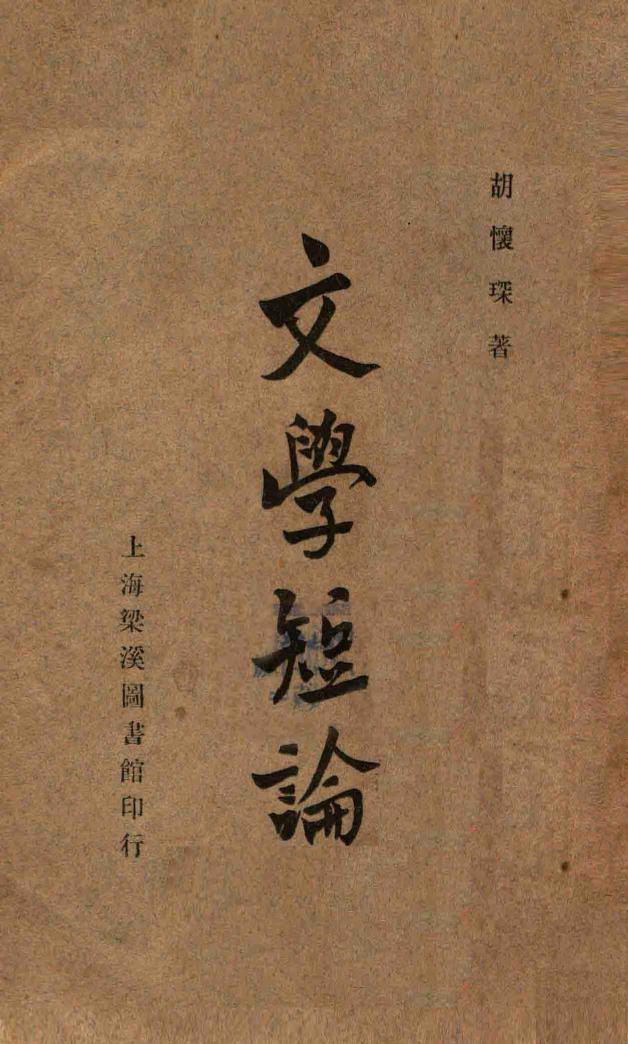 胡懷琛著
文學短論
上海梁溪圖書館印行